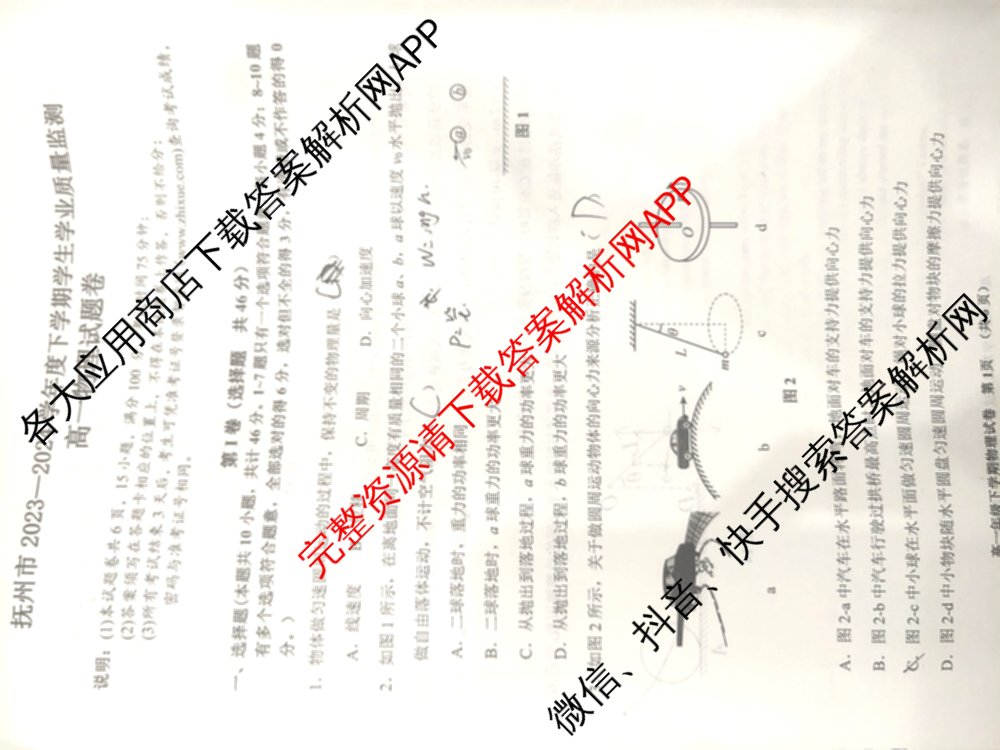 抚州市 2023—202 年度下学期学生学业质量监测
高一 试题卷
说明：(1)本试题卷共 6 页，15 小题，满分 100 时间 75 分钟；
(2)答案须写在答题卡相应的位置上，不得在 作答，否则不给分；
(3)所有考试结束 3 天后，考生可凭准考证号登录 (www.zhixue.com)查询考试成绩，
密码与准考证号相同。
第Ⅰ卷（选择题 共 46 分）
一、选择题(本题共 10 小题，共计 46 分，1-7 题只有一个选项符合题 小题 4 分；8-10 题
有多个选项符合题意，全部选对的得 6 分，选对但不全的得 3 分， 或不作答的得 0
分。)
1. 物体做匀速 的过程中，保持不变的物理量是
A. 线速度 C. 周期 D. 向心加速度
2. 如图 1 所示，在离地 有质量相同的二个小球 a、b，a 球以速度 v₀ 水平抛出
做自由落体运动，不计空 C )
P= W=mgh.
A. 二球落地时，重力的功率相同
B. 二球落地时，a 球重力的功率更大
C. 从抛出到落地过程，a 球重力的功率更
D. 从抛出到落地过程，b 球重力的功率更大
v₀ a b
图 1
如图 2 所示，关于做圆周运动物体的向心力来源分析 是( D
v
L θ m
O
a b c d
图 2
A. 图 2-a 中汽车在水平路面 地面对车的支持力提供向心力
B. 图 2-b 中汽车行驶过拱桥最高 面对车的支持力提供向心力
C. 图 2-c 中小球在水平面做匀速圆周 绳对小球的拉力提供向心力
D. 图 2-d 中小物块随水平圆盘匀速圆周运 对物块的摩擦力提供向心力
高一年级下学期物理试卷 第 1 页 (共 页)
各大应用商店下载答案解析网APP
完整资源请下载答案解析网APP
微信、抖音、快手搜索答案解析网